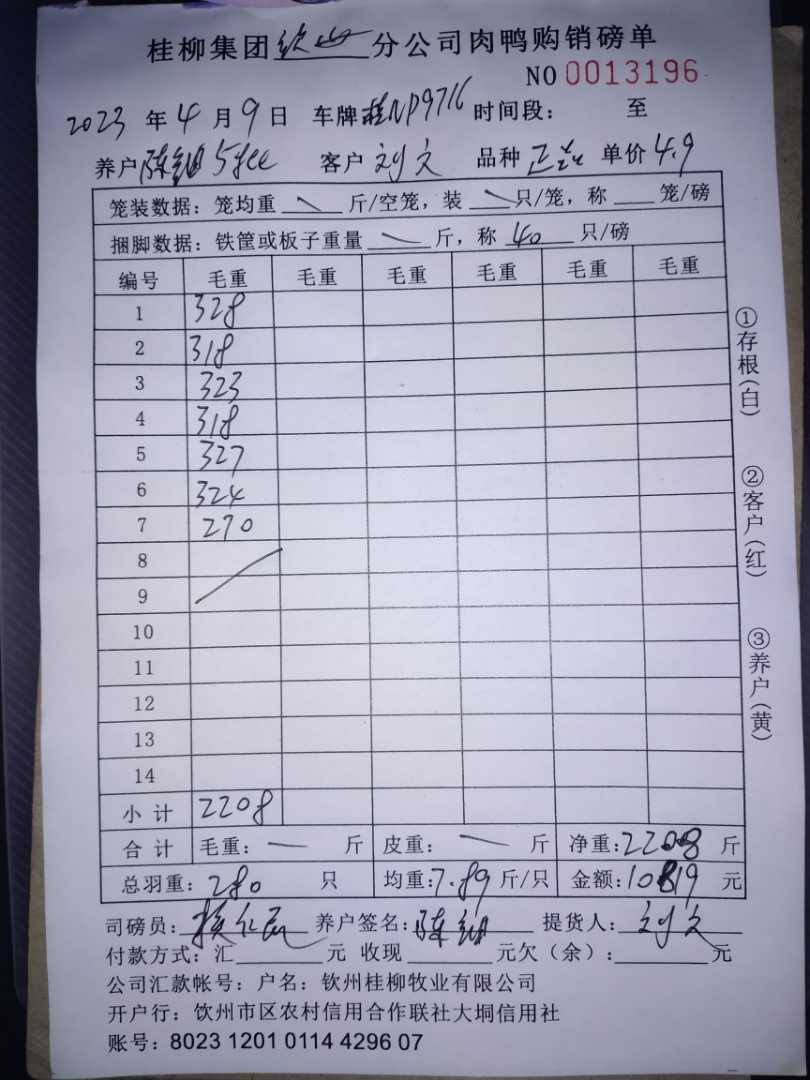 桂柳集团钦州分公司肉鸭购销磅单
NO 0013196
2023 年 4 月 9 日 车牌桂NP9716 时间段: 至
养户陈 客户 刘文 品种 正品 单价 4.9
笼装数据: 笼均重 斤/空笼, 装 只/笼, 称 笼/磅
捆脚数据: 铁筐或板子重量 斤, 称 40 只/磅
编号 毛重 毛重 毛重 毛重 毛重 毛重
1 328
2 318
3 323
4 318
5 327
6 324
7 270
8
9
10
11
12
13
14
小计 2208
合计 毛重: 一 斤 皮重: 一 斤 净重: 2208 斤
总羽重: 280 只 均重: 7.89 斤/只 金额: 10819 元
司磅员: 养户签名: 陈 提货人: 刘文
付款方式: 汇 元 收现 元欠(余): 元
公司汇款帐号: 户名: 钦州桂柳牧业有限公司
开户行: 饮州市区农村信用合作联社大垌信用社
账号: 8023 1201 0114 4296 07
①存根(白)
②客户(红)
③养户(黄)